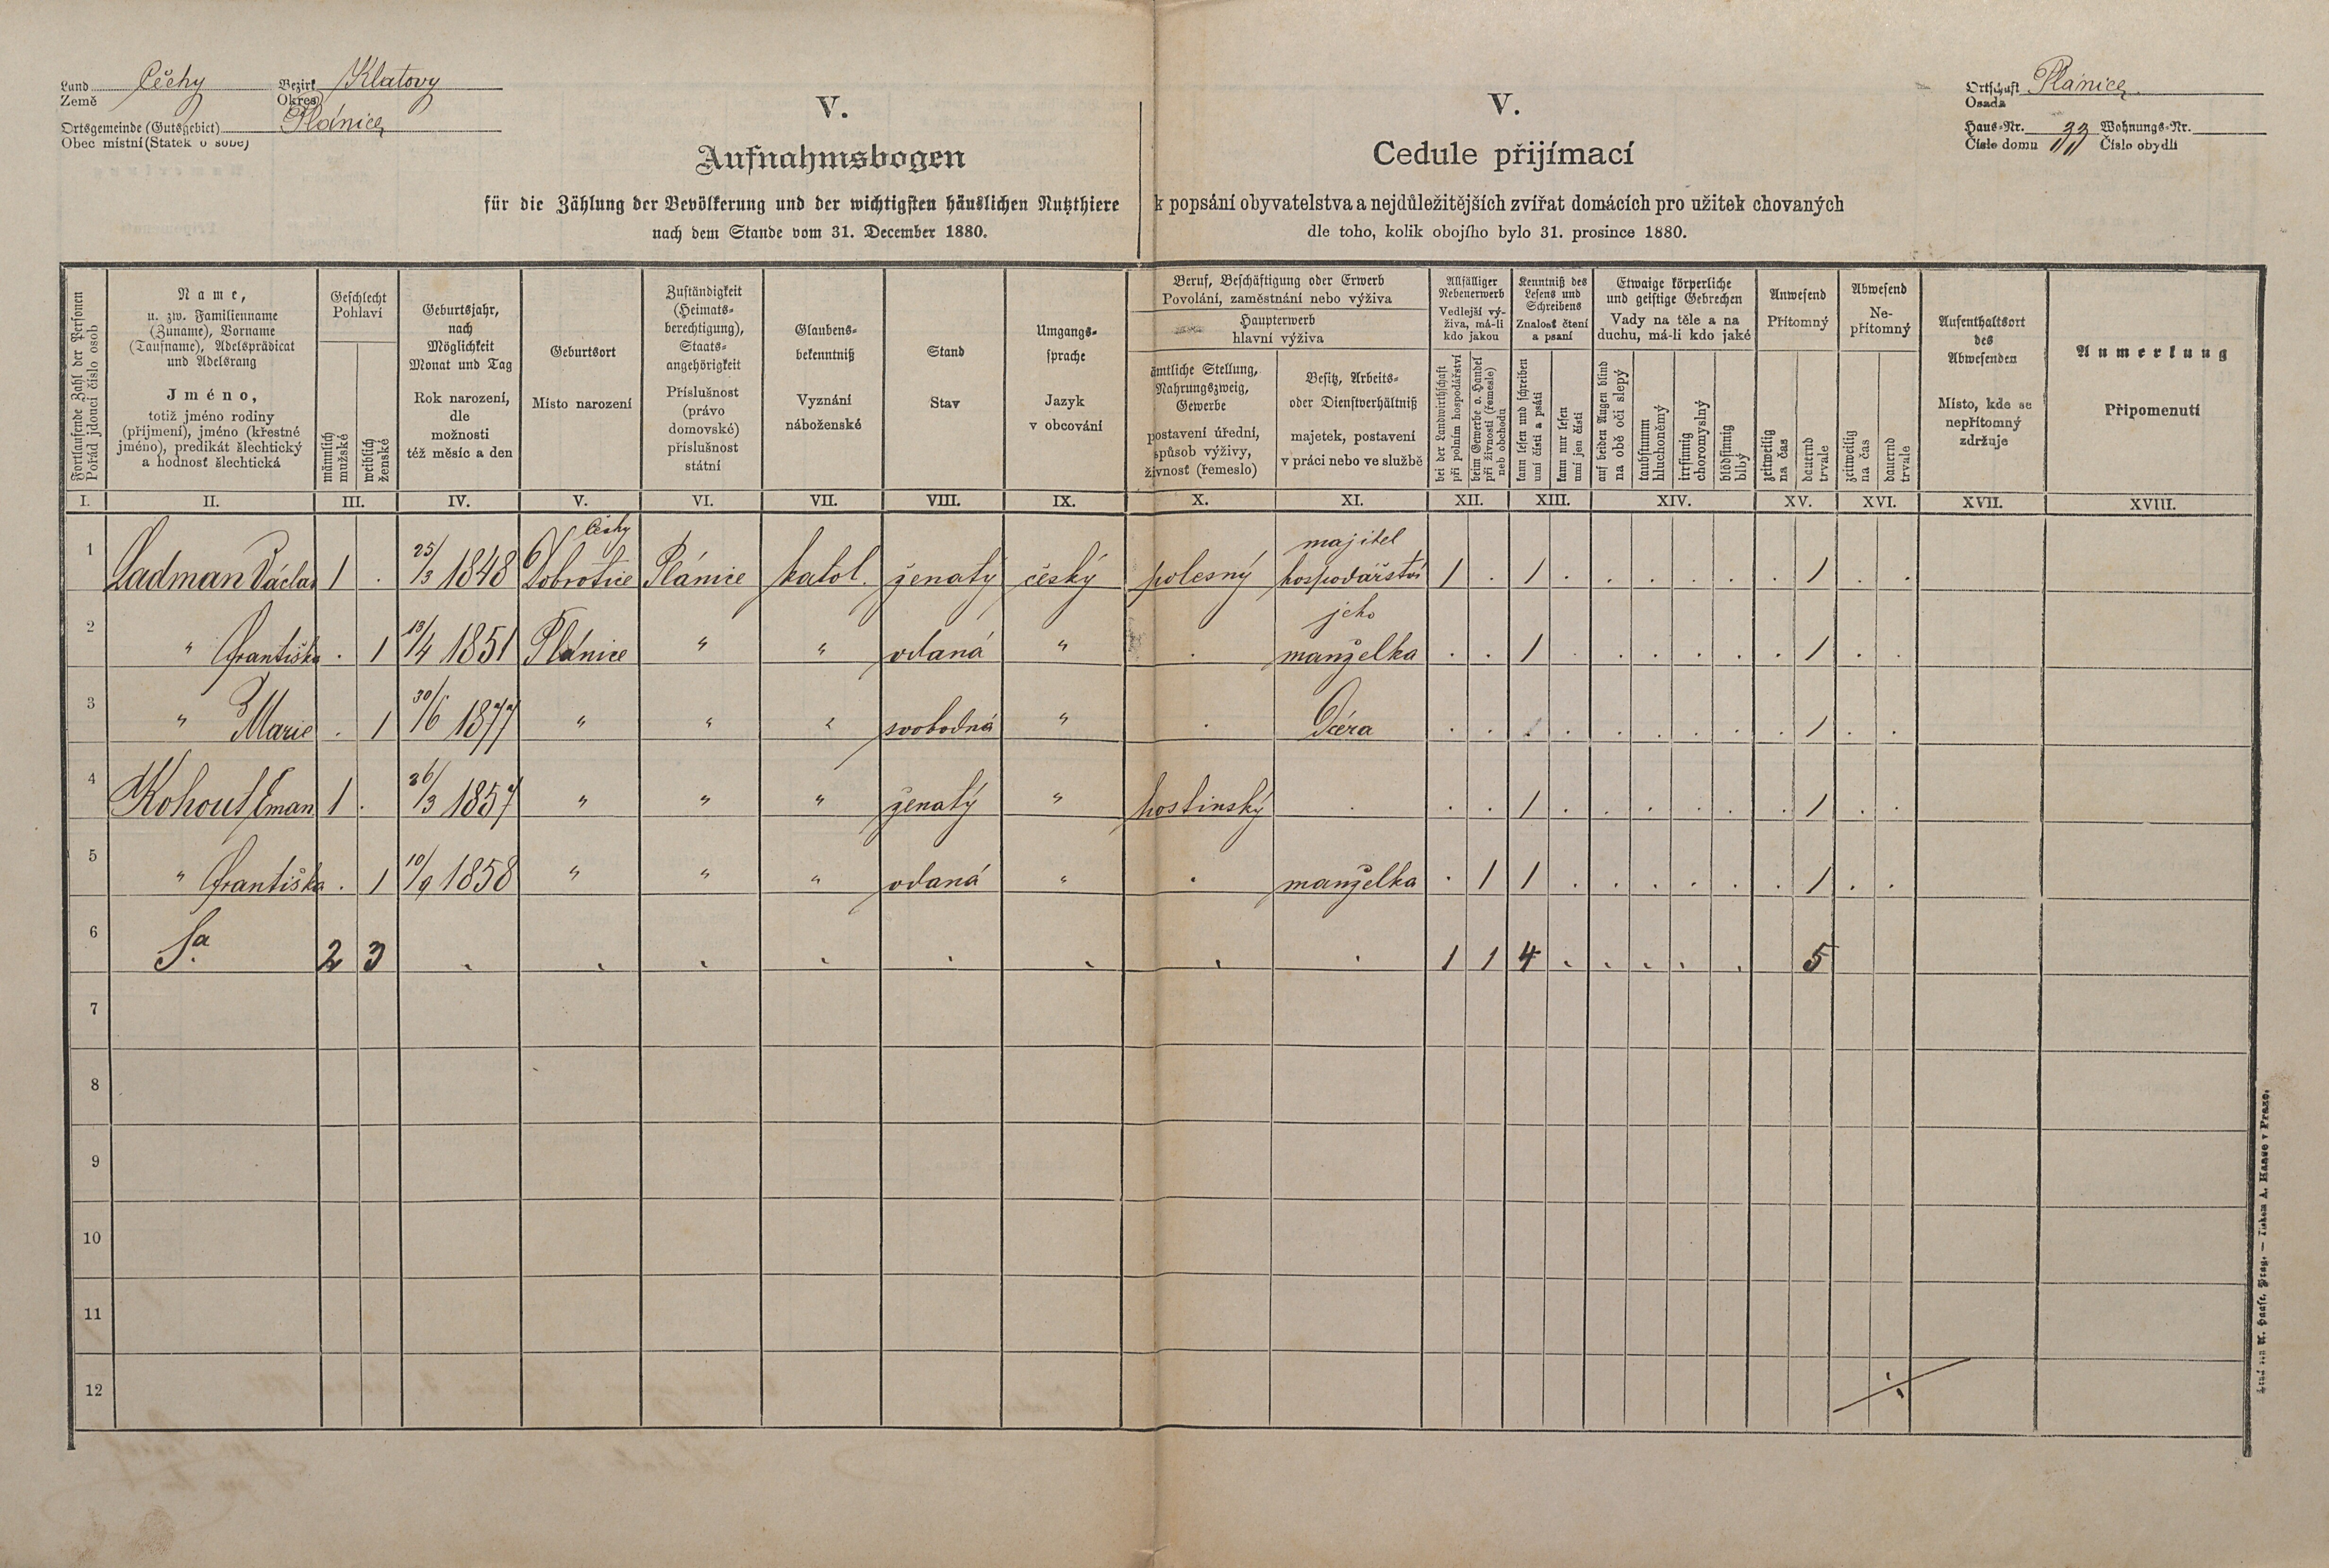 Land Čechy Bezirk Klatovy
Země Okres
Ortsgemeinde (Gutsgebiet) Plánice
Obec místní (Statek o sobě)
Ortschaft Plánice
Osada
Haus-Nr. 33 Wohnungs-Nr.
Číslo domu Číslo obydlí
V.
Aufnahmsbogen
für die Zählung der Bevölkerung und der wichtigsten häuslichen Nutzthiere
nach dem Stande vom 31. December 1880.
V.
Cedule přijímací
k popsání obyvatelstva a nejdůležitějších zvířat domácích pro užitek chovaných
dle toho, kolik obojího bylo 31. prosince 1880.
Fortlaufende Zahl der Personen
Pořád jdoucí číslo osob
Name,
u. zw. Familienname
(Zuname), Vorname
(Taufname), Adelsprädicat
und Adelsrang
Jméno,
totiž jméno rodiny
(příjmení), jméno (křestné
jméno), predikát šlechtický
a hodnosť šlechtická
Geschlecht
Pohlaví
männlich
mužské
weiblich
ženské
Geburtsjahr,
nach
Möglichkeit
Monat und Tag
Rok narození,
dle
možnosti
též měsíc a den
Geburtsort
Místo narození
Zuständigkeit
(Heimats-
berechtigung),
Staats-
angehörigkeit
Příslušnost
(právo
domovské)
příslušnost
státní
Glaubens-
bekenntniß
Vyznání
náboženské
Stand
Stav
Umgangs-
sprache
Jazyk
v obcování
Beruf, Beschäftigung oder Erwerb
Povolání, zaměstnání nebo výživa
Haupterwerb
hlavní výživa
ämtliche Stellung,
Nahrungszweig,
Gewerbe
postavení úřední,
způsob výživy,
živnosť (řemeslo)
Besitz, Arbeits-
oder Dienstverhältniß
majetek, postavení
v práci nebo ve službě
Allfälliger
Nebenerwerb
Vedlejší vý-
živa, má-li
kdo jakou
bei der Landwirthschaft
při polním hospodářství
beim Gewerbe o. Handel
při živnosti (řemesle)
neb obchodu
Kenntniß des
Lesens und
Schreibens
Znalosť čtení
a psaní
kann lesen und schreiben
umí čísti a psáti
kann nur lesen
umí jen čísti
Etwaige körperliche
und geistige Gebrechen
Vady na těle a na
duchu, má-li kdo jaké
auf beiden Augen blind
na obě oči slepý
taubstumm
hluchoněmý
irrsinnig
choromyslný
blödsinnig
blbý
Anwesend
Přítomný
zeitweilig
na čas
dauernd
trvale
Abwesend
Ne-
přítomný
zeitweilig
na čas
dauernd
trvale
Aufenthaltsort
des
Abwesenden
Místo, kde se
nepřítomný
zdržuje
Anmerkung
Připomenutí
I. II. III. IV. V. VI. VII. VIII. IX. X. XI. XII. XIII. XIV. XV. XVI. XVII. XVIII.
1 Ladman Václav 1 . 25/3 1848 Dobrotice Čechy Plánice katol. ženatý český polesný majitel hospodářství 1 . 1 . . . . . . 1 . .
2 " Františka . 1 13/4 1851 Plánice " " vdaná " . jeho manželka . . 1 . . . . . . 1 . .
3 " Marie . 1 30/6 1877 " " " svobodná " . Dcera . . . . . . . . . 1 . .
4 Kohout Eman. 1 . 26/3 1857 " " " ženatý " hostinský . . . 1 . . . . . . 1 . .
5 " Františka . 1 10/9 1858 " " " vdaná " . manželka . 1 1 . . . . . . 1 . .
6 Sa. 2 3 . . . . . . . . 1 1 4 . . . . . 5
7
8
9
10
11
12
Druck von A. Haase, Prag. — Tiskem A. Haase v Praze.